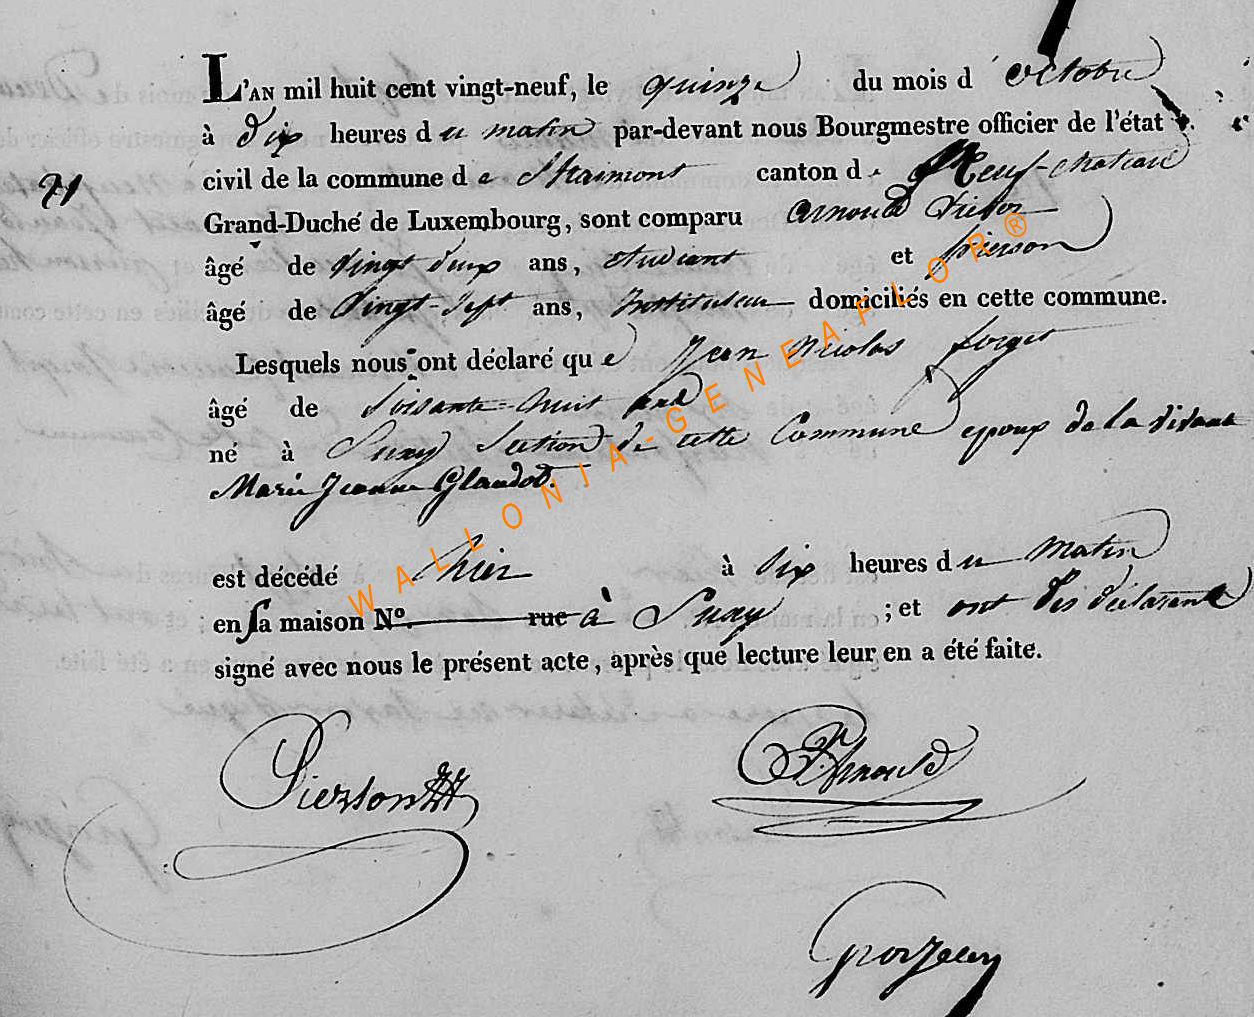 L'AN mil huit cent vingt-neuf, le quinze du mois d'octobre
à dix heures du matin par-devant nous Bourgmestre officier de l'état
21
civil de la commune de Straimont canton de Neuf-chateau
Grand-Duché de Luxembourg, sont comparu Arnould
âgé de vingt deux ans, étudiant et pierson
âgé de vingt-sept ans, instituteur domiciliés en cette commune.
Lesquels nous ont déclaré que Jean Nicolas forget
âgé de soisante-huit ans
né à Suxy Section de cette Commune epoux de la
Marie Jeanne Glaudot.
est décédé hier à six heures du matin
en sa maison N°. rue à Suxy ; et ont
signé avec nous le présent acte, après que lecture leur en a été faite.
Pierson Arnould
Grosjean
WALLONIA-GENEAFLOR®